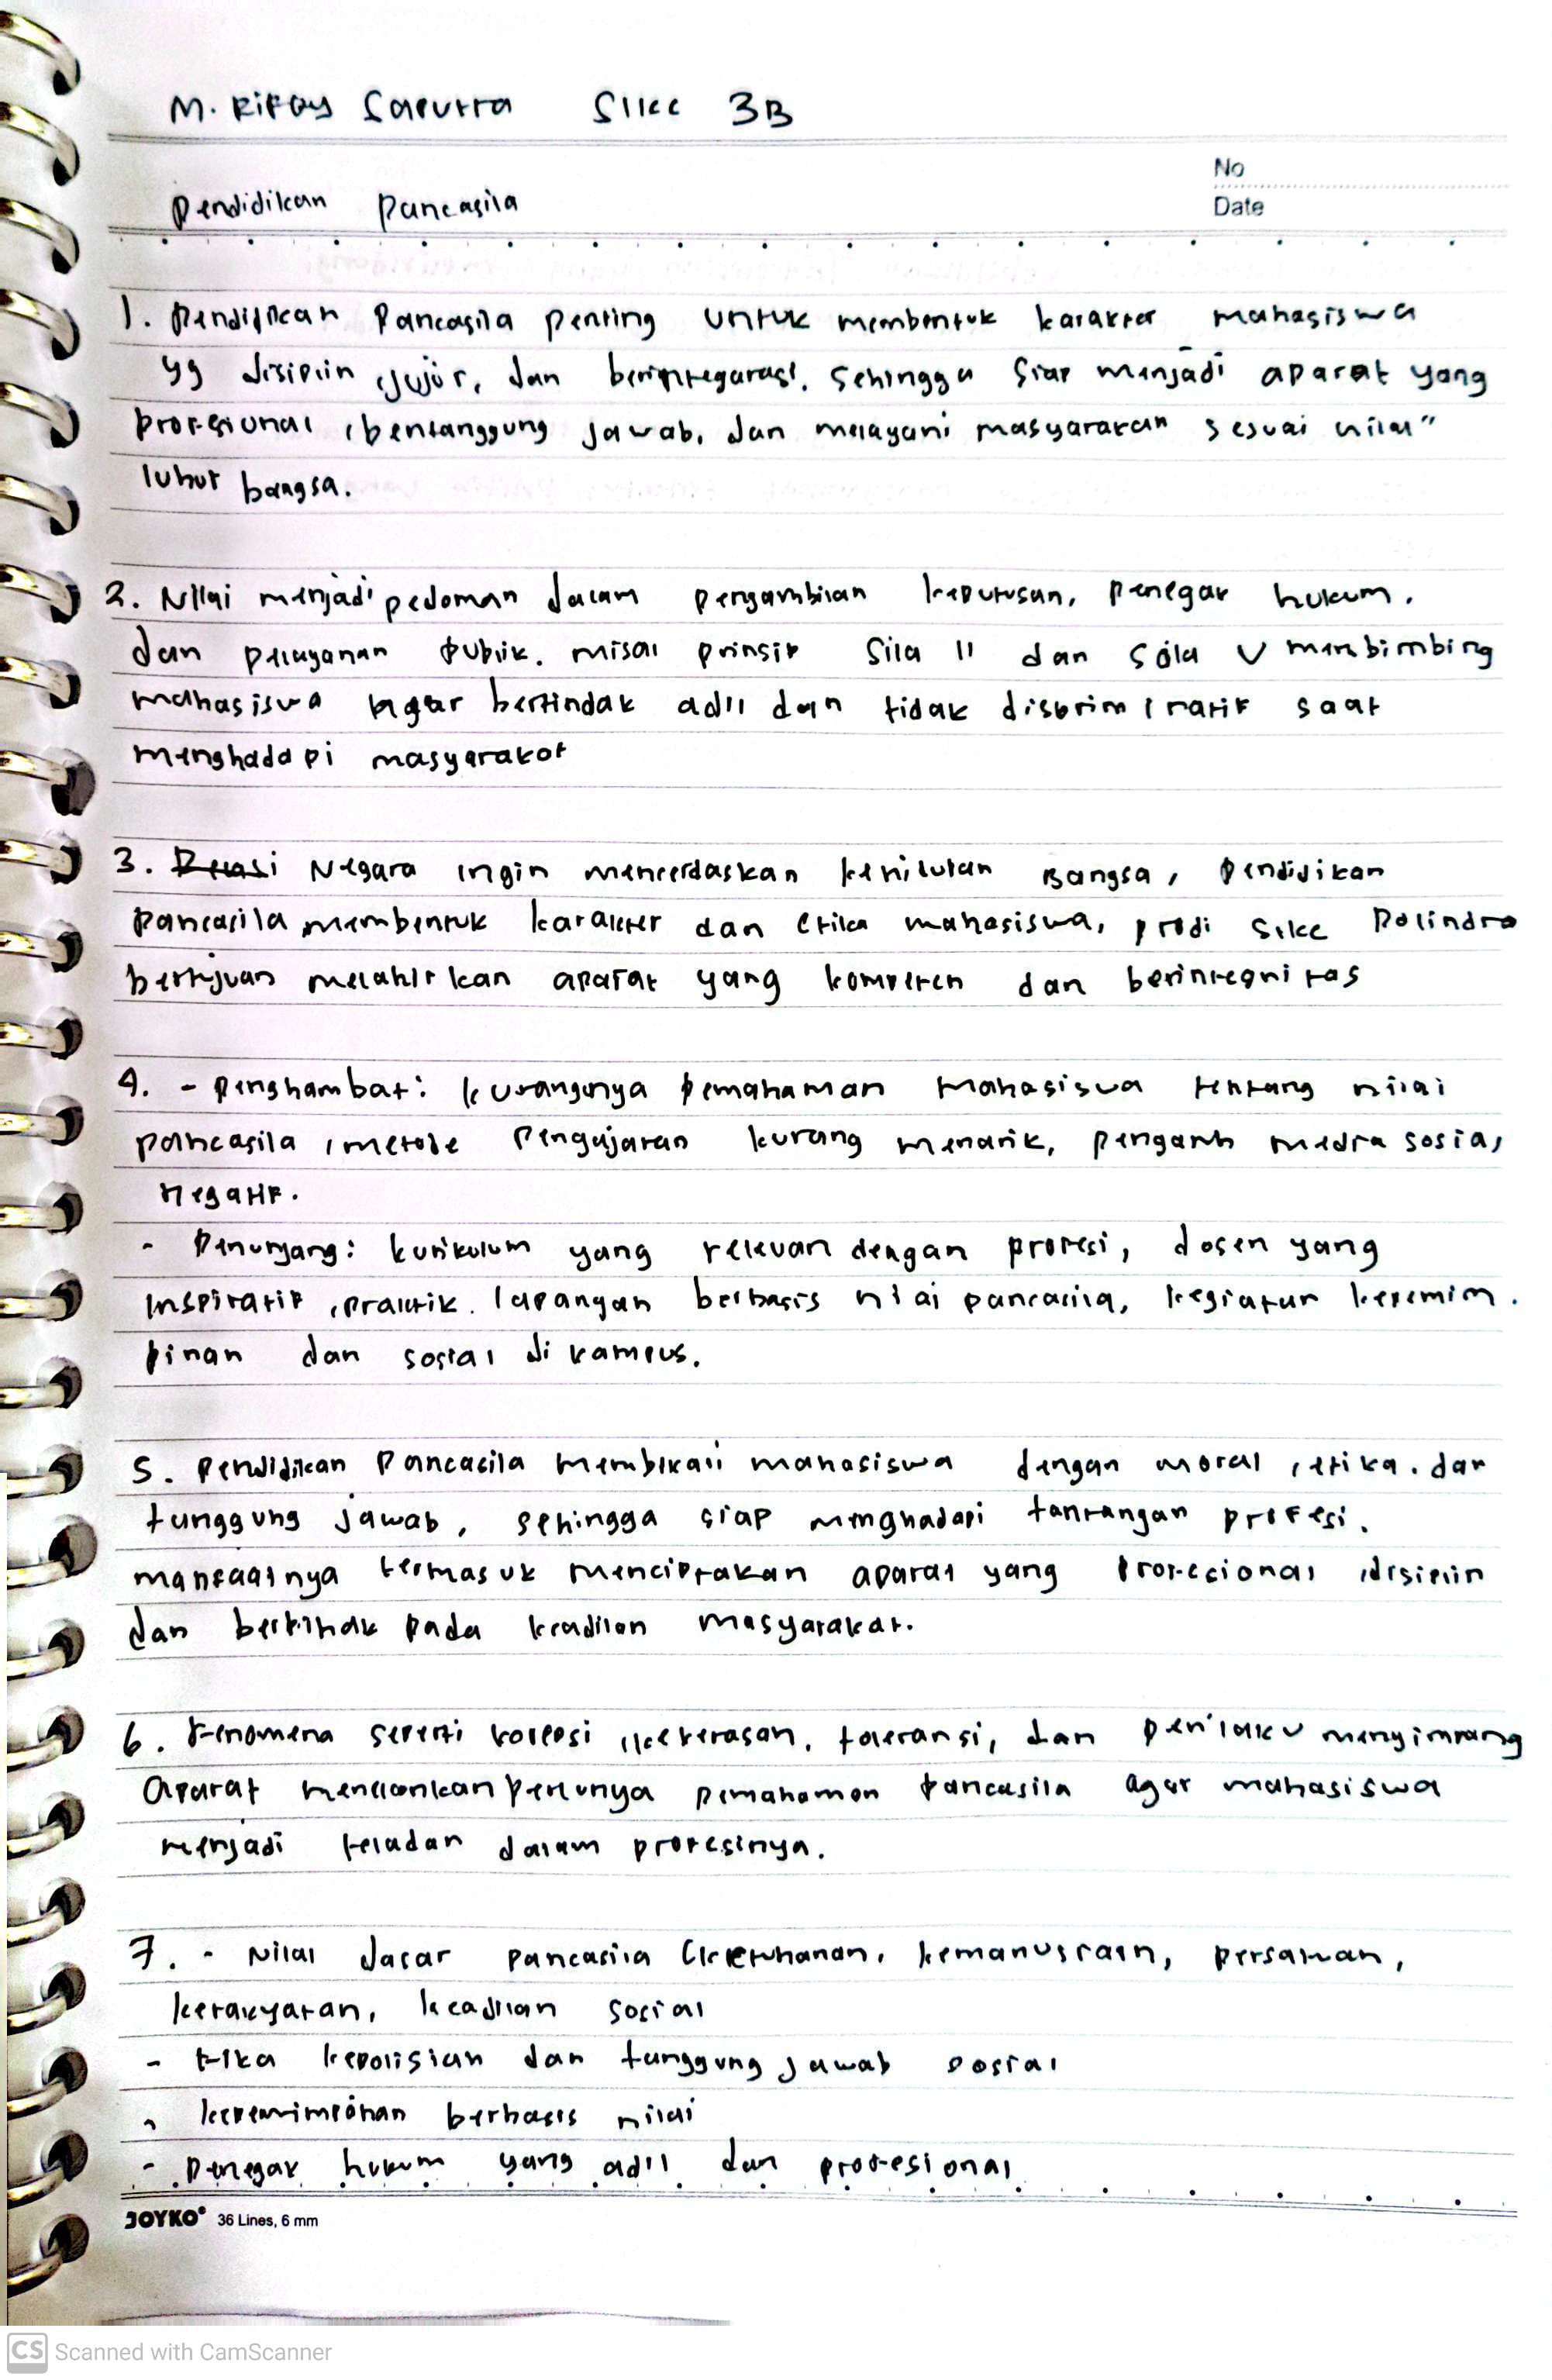 M. Rifqy Saputra SIKC 3B
No
Date
Pendidikan Pancasila
1. Pendidikan Pancasila penting untuk membentuk karakter mahasiswa
yg disiplin, jujur, dan berintegarasi, sehingga siap menjadi aparat yang
profesional, bertanggung jawab, dan melayani masyarakan sesuai nilai"
luhur bangsa.
2. Nilai menjadi pedoman dalam pengambilan keputusan, penegak hukum,
dan pelayanan publik. misal prinsip Sila II dan Sila V membimbing
mahasiswa agar bertindak adil dan tidak diskriminatif saat
menghadapi masyarakat
3. Negara ingin mencerdaskan kehidupan Bangsa, Pendidikan
Pancasila membentuk karakter dan etika mahasiswa, prodi SIKC Polindra
bertujuan melahirkan aparat yang kompeten dan berintegritas
4. - Penghambat: kurangnya pemahaman mahasiswa tentang nilai
pancasila, metode pengajaran kurang menarik, pengaruh media sosial
negatif.
- Penunjang: kurikulum yang relevan dengan profesi, dosen yang
inspiratif, praktik lapangan berbasis nilai pancasila, kegiatan kepemim.
pinan dan sosial di kampus.
5. Pendidikan Pancasila membekali mahasiswa dengan moral, etika, dan
tanggung jawab, sehingga siap menghadapi tantangan profesi.
manfaatnya termasuk menciptakan aparat yang profesional, disiplin
dan berpihak pada keadilan masyarakat.
6. Fenomena seperti korupsi, kekerasan, toleransi, dan perilaku menyimpang
aparat perlunya pemahaman Pancasila agar mahasiswa
menjadi teladan dalam profesinya.
7. - Nilai dasar pancasila (ketuhanan, kemanusiaan, persatuan,
kerakyatan, keadilan sosial
- Etika kepolisian dan tanggung jawab sosial
- kepemimpinan berbasis nilai
- Penegak hukum yang adil dan profesional
JOYKO 36 Lines, 6 mm
CS Scanned with CamScanner